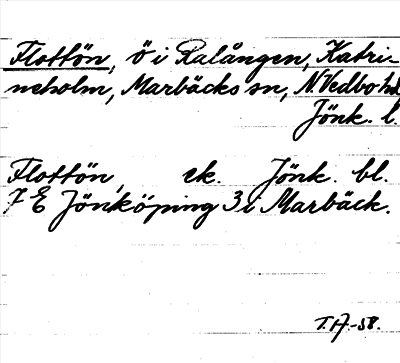 Flottön, ö i Ralången, Katri-
neholm, Marbäcks sn, N. Vedbo hd
Jönk. l.
Flottön, ek. Jönk. bl.
7 E Jönköping 3 i Marbäck.
T. A. -58.